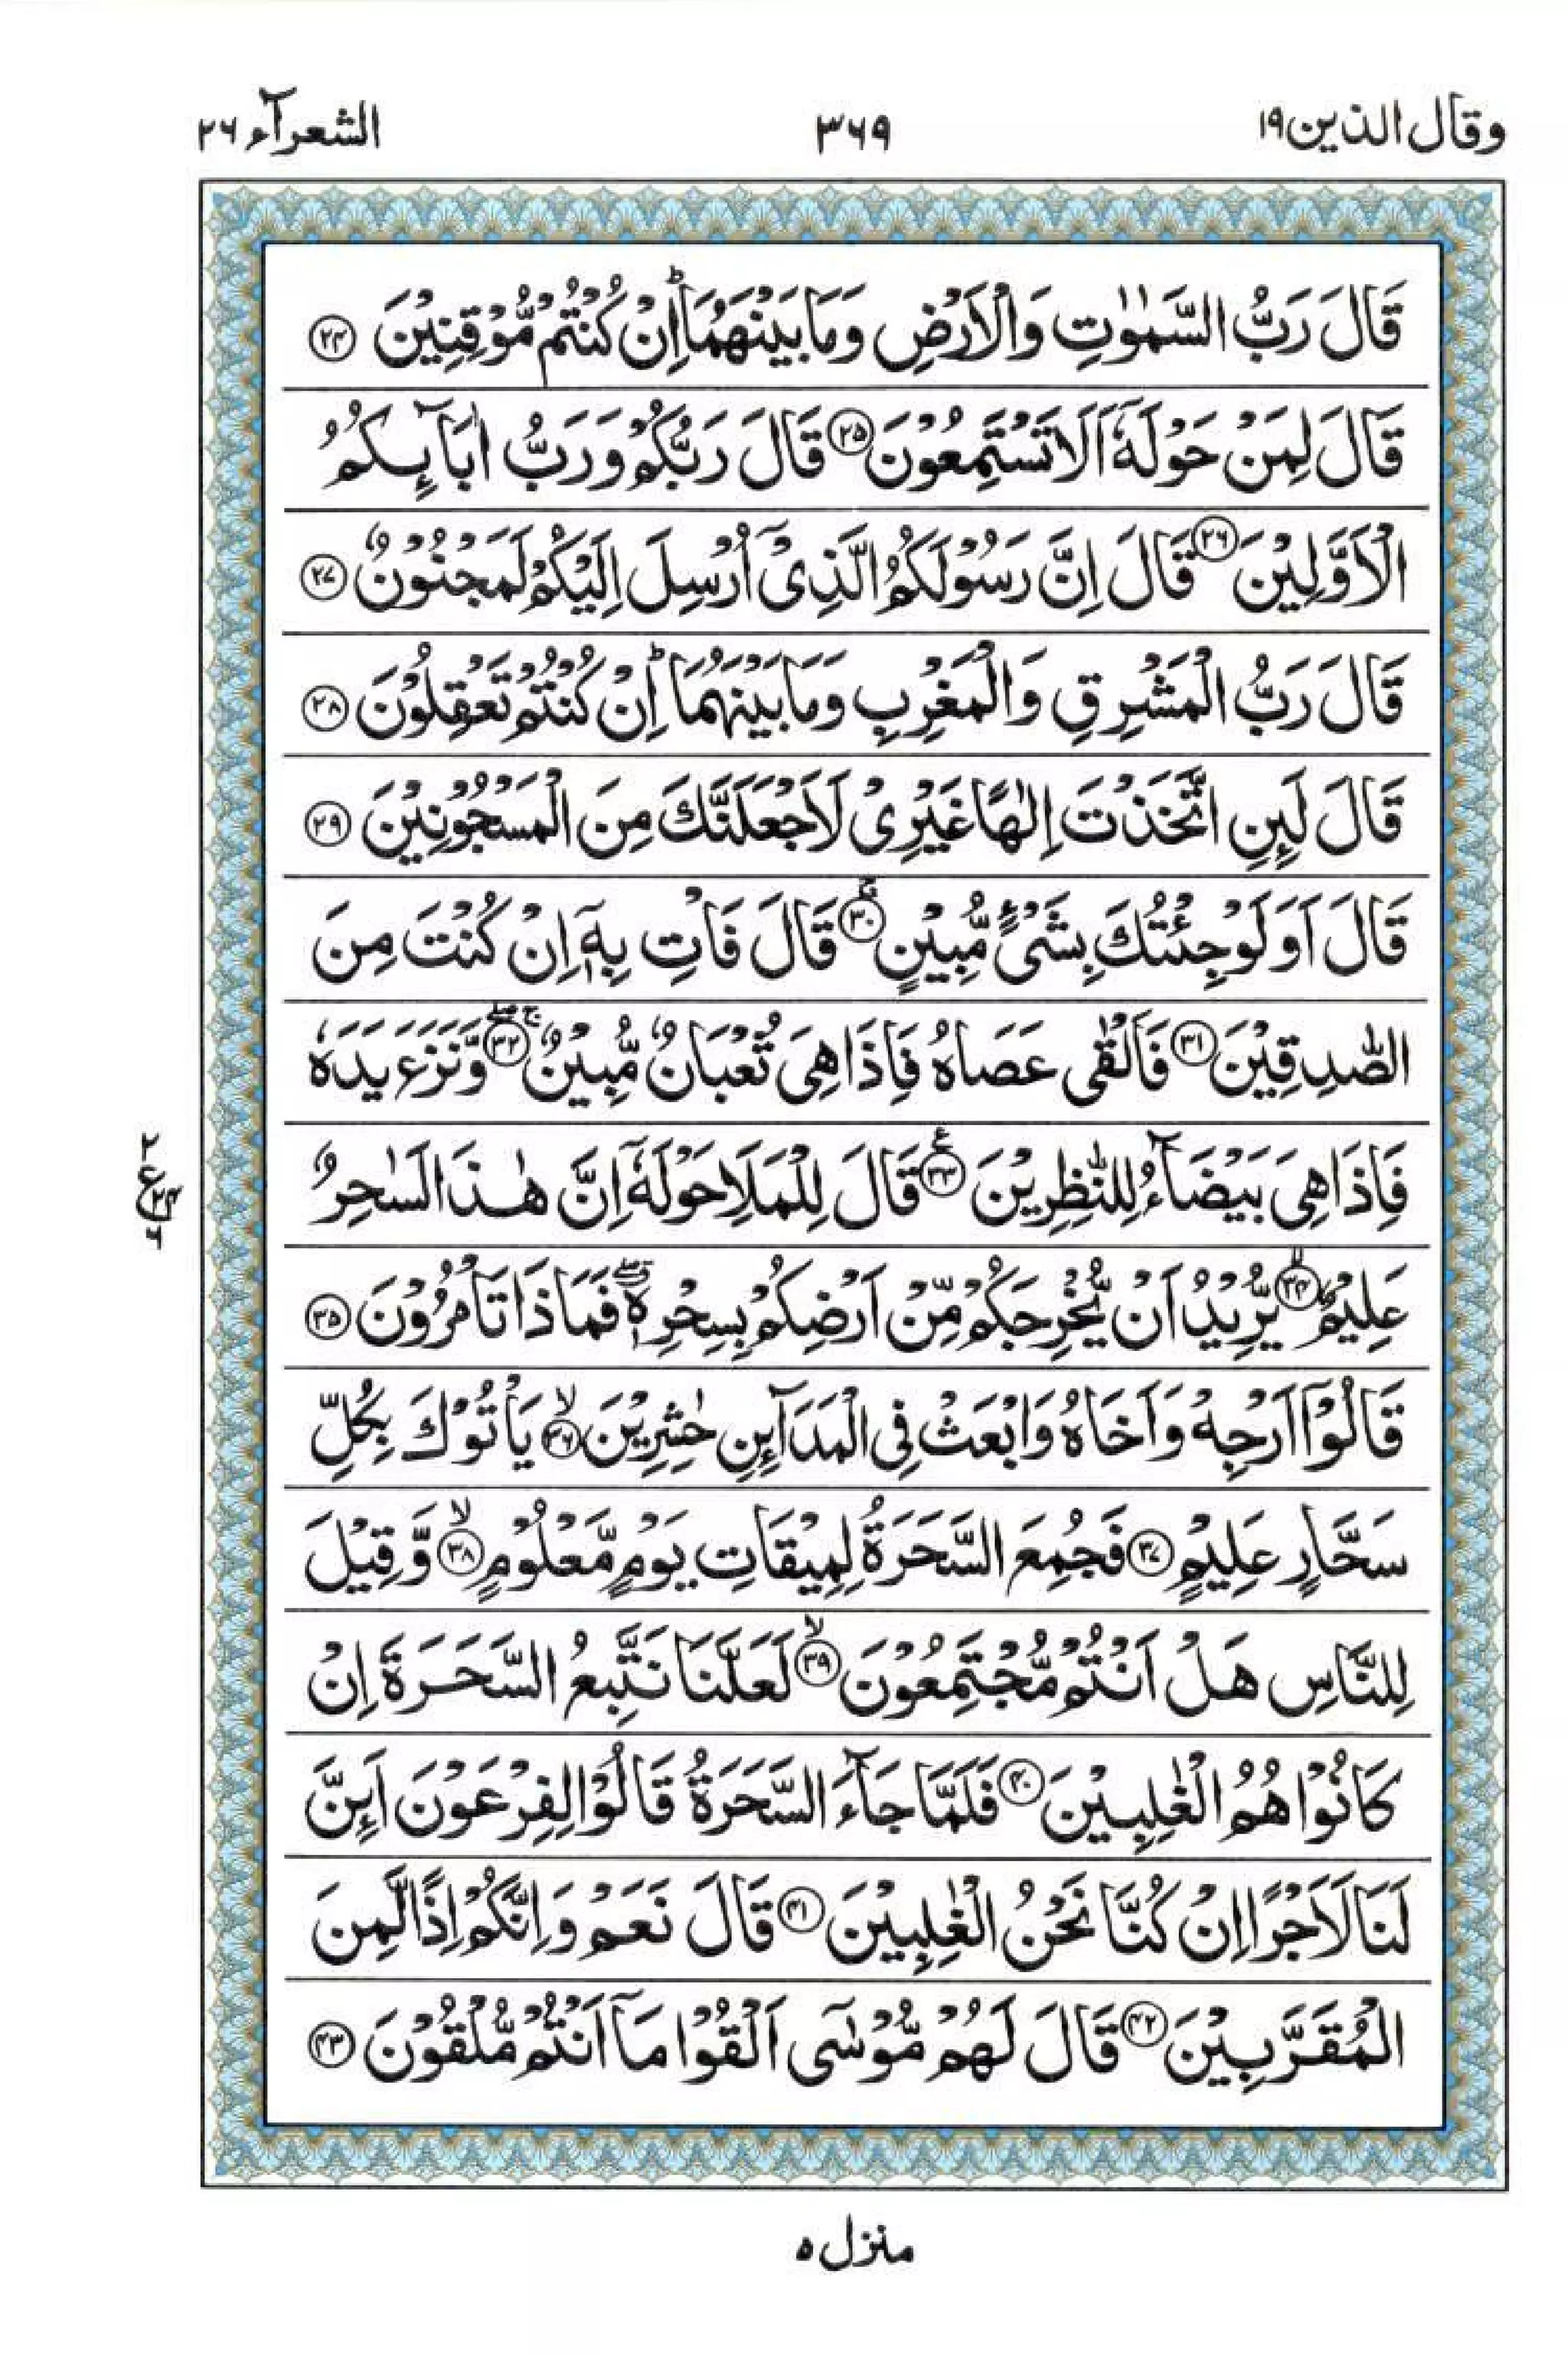 وقال الذين ١٩ ٣٦٩ الشعرآء ٢٦
قَالَ رَبُّ السَّمٰوٰتِ وَالْاَرْضِ وَمَا بَيْنَهُمَا ؕ اِنْ كُنْتُمْ مُّوْقِنِيْنَ ﴿۲۴﴾
قَالَ لِمَنْ حَوْلَهٗۤ اَلَا تَسْتَمِعُوْنَ ﴿۲۵﴾ قَالَ رَبُّكُمْ وَرَبُّ اٰبَآىِٕكُمُ
الْاَوَّلِيْنَ ﴿۲۶﴾ قَالَ اِنَّ رَسُوْلَكُمُ الَّذِيْۤ اُرْسِلَ اِلَيْكُمْ لَمَجْنُوْنٌ ﴿۲۷﴾
قَالَ رَبُّ الْمَشْرِقِ وَالْمَغْرِبِ وَمَا بَيْنَهُمَا ؕ اِنْ كُنْتُمْ تَعْقِلُوْنَ ﴿۲۸﴾
قَالَ لَىِٕنِ اتَّخَذْتَ اِلٰهًا غَيْرِيْ لَاَجْعَلَنَّكَ مِنَ الْمَسْجُوْنِيْنَ ﴿۲۹﴾
قَالَ اَوَلَوْ جِئْتُكَ بِشَيْءٍ مُّبِيْنٍ ۚ﴿۳۰﴾ قَالَ فَاْتِ بِهٖۤ اِنْ كُنْتَ مِنَ
الصّٰدِقِيْنَ ﴿۳۱﴾ فَاَلْقٰى عَصَاهُ فَاِذَا هِيَ ثُعْبَانٌ مُّبِيْنٌ ۚۖ﴿۳۲﴾ وَّنَزَعَ يَدَهٗ
فَاِذَا هِيَ بَيْضَآءُ لِلنّٰظِرِيْنَ ﴿۳۳﴾ع قَالَ لِلْمَلَاِ حَوْلَهٗۤ اِنَّ هٰذَا لَسٰحِرٌ
عَلِيْمٌ ۙ﴿۳۴﴾ يُّرِيْدُ اَنْ يُّخْرِجَكُمْ مِّنْ اَرْضِكُمْ بِسِحْرِهٖ ۗۖ فَمَاذَا تَاْمُرُوْنَ ﴿۳۵﴾
قَالُوْۤا اَرْجِهْ وَاَخَاهُ وَابْعَثْ فِي الْمَدَآىِٕنِ حٰشِرِيْنَ ۙ﴿۳۶﴾ يَاْتُوْكَ بِكُلِّ
سَحَّارٍ عَلِيْمٍ ﴿۳۷﴾ فَجُمِعَ السَّحَرَةُ لِمِيْقَاتِ يَوْمٍ مَّعْلُوْمٍ ۙ﴿۳۸﴾ وَّقِيْلَ
لِلنَّاسِ هَلْ اَنْتُمْ مُّجْتَمِعُوْنَ ۙ﴿۳۹﴾ لَعَلَّنَا نَتَّبِعُ السَّحَرَةَ اِنْ
كَانُوْا هُمُ الْغٰلِبِيْنَ ﴿۴۰﴾ فَلَمَّا جَآءَ السَّحَرَةُ قَالُوْا لِفِرْعَوْنَ اَىِٕنَّ
لَنَا لَاَجْرًا اِنْ كُنَّا نَحْنُ الْغٰلِبِيْنَ ﴿۴۱﴾ قَالَ نَعَمْ وَاِنَّكُمْ اِذًا لَّمِنَ
الْمُقَرَّبِيْنَ ﴿۴۲﴾ قَالَ لَهُمْ مُّوْسٰۤى اَلْقُوْا مَاۤ اَنْتُمْ مُّلْقُوْنَ ﴿۴۳﴾
منزل ٥